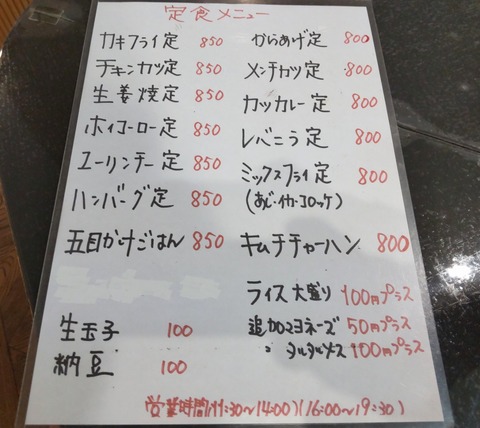 定食メニュー
カキフライ定 850
チキンカツ定 850
生姜焼定 850
ホイコーロー定 850
ユーリンチー定 850
ハンバーグ定 850
五目かけごはん 850
生玉子 100
納豆 100
からあげ定 800
メンチカツ定 800
カツカレー定 800
レバニラ定 800
ミックスフライ定 800
(あじ・イカ・コロッケ)
キムチチャーハン 800
ライス大盛り 100円プラス
追加マヨネーズ 50円プラス
〃 タルタルソース 100円プラス
営業時間(11:30~14:00)(16:00~19:30)